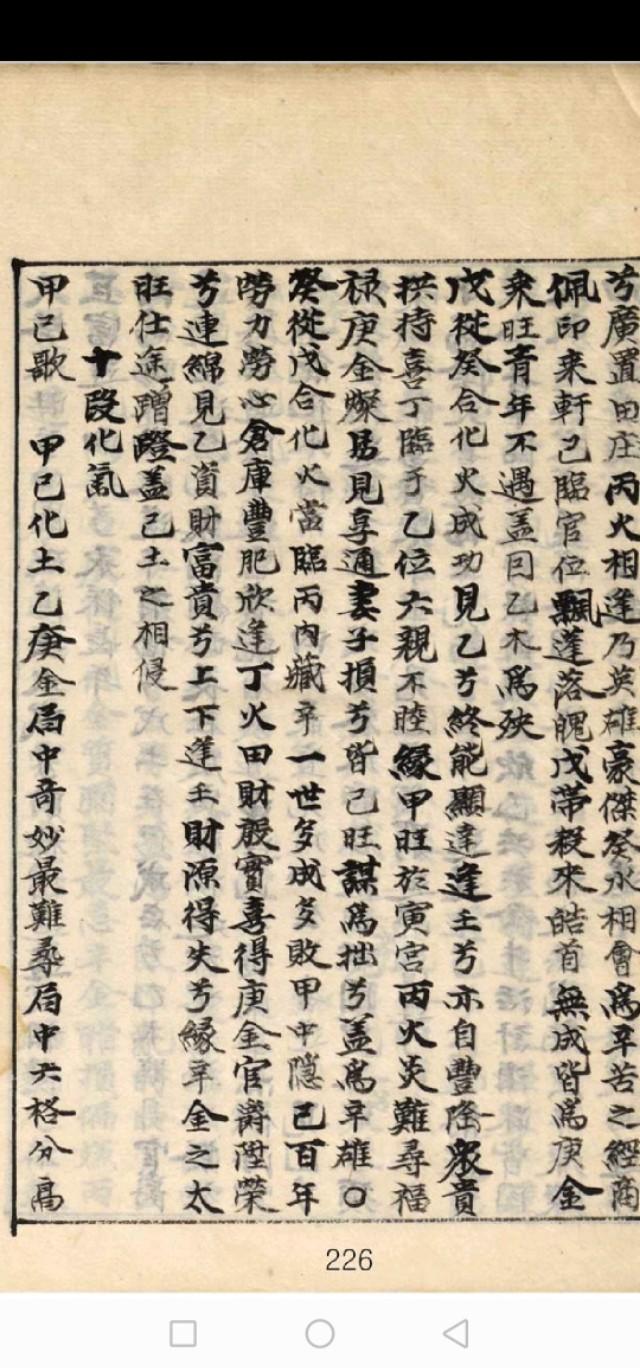 兮廣置田庄丙火相逢乃英雄豪傑癸水相會為辛苦之經商
佩印乘軒己臨官位飄蓬落魄戊帶殺來皓首無成皆為庚金
乘旺青年不遇蓋因乙木為殃
戊從癸合化火成功見乙兮終能顯達逢壬兮亦自豐隆衆貴
拱持喜丁臨于乙位六親不睦緣甲旺於寅宮丙火炎難尋福
祿庚金燦易見享通妻子損兮皆己旺謀為拙兮蓋為辛雄○
癸從戊合化火當臨丙內藏辛一世多成多敗甲中隱己百年
勞力勞心倉庫豐肥欣逢丁火田財殷實喜得庚金官爵陞榮
兮連綿見乙資財富貴兮上下逢壬財源得失兮緣辛金之太
旺仕途蹭蹬蓋己土之相侵
十段化氣
甲己歌 甲己化土乙庚金局中奇妙最難尋局中六格分高
226